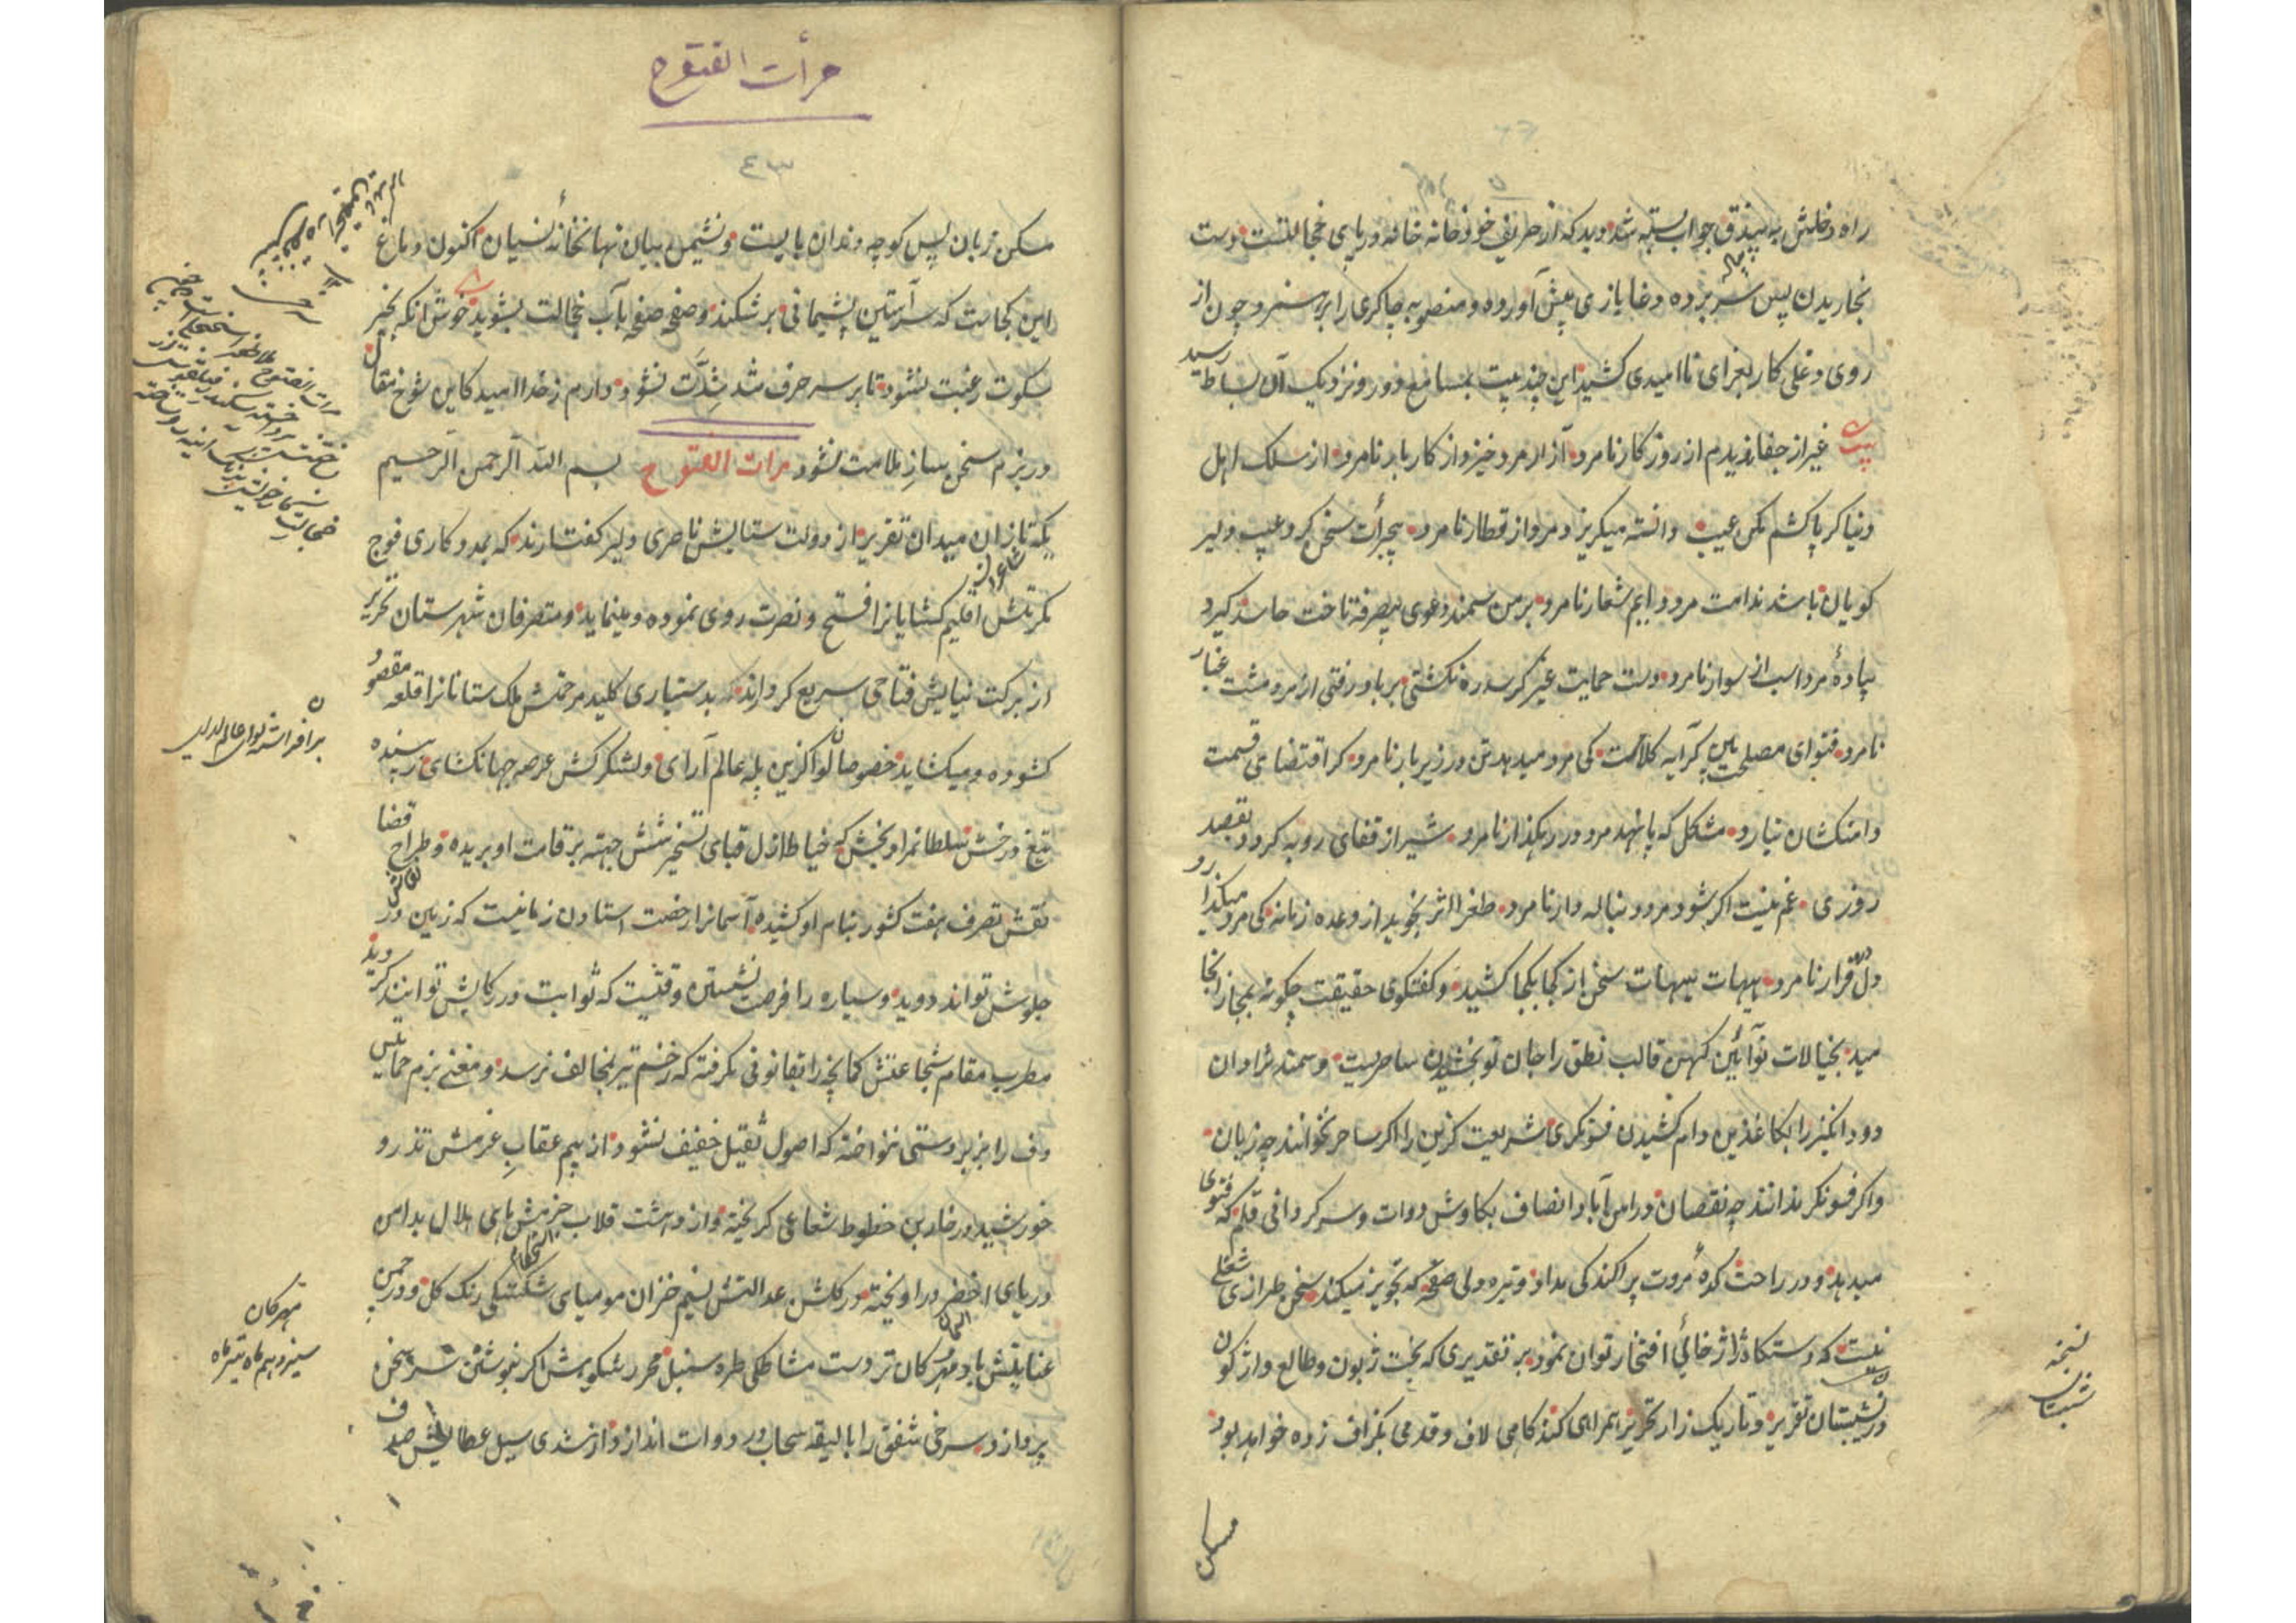 راه دخلش به بیذق جواب بسته شد دید که از حریف خود خانه خانه در پای خجالتست دست
بخاریدن پس سر برده دغا بازی پیش آورده و منصوبه چاکری را بر هم زد و چون از
روی دغلی کار بغرای ناامیدی کشید این چند بیت بمسامع دور و نزدیک آن بساط رسید
بیت غیر از جفا ندیدم از روزگار نامرد آزار مرد خیزد از کاربار نامرد از سلک اهل
دنیا گر پا کشم مکن عیب دانسته میگریزد مرد از قطار نامرد بجرأت سخن کرد عیب دلیر
گویان باشد ندامت مرد دایم شعار نامرد بر من سمند دعوی بیصرفه تاخت حاسد گیرد
پیادهٔ مرد اسب از سوار نامرد دست حمایت غیر گر سد ره نگشتی بر باد رفتی از مرد مشت غبار
نامرد فتوای مصلحت بین پیرایه کلامست کی مرد میدهد تن در زیر بار نامرد گر اقتضای قسمت
دامنکشان نیارد مشکل که پا نهد مرد در رهگذار نامرد شیر از قفای روبه گردد بقصد
روزی غم نیست اگر بشود مرد دنباله دار نامرد طغرا اثر نجوید از وعده زمانه کی مرد میگذارد
در دل قرار نامرد هیهات هیهات سخن از کجا بکجا کشید و گفتگوی حقیقت چگونه بمجاز انجا
مید بخیالات نوآئین کهن قالب نطق را جان نو بخشیدن ساحریست و سمند نژادان
دود انگیز را بکاغذین دام کشیدن فسونگری شریعت گزین را اگر ساحر نخوانند چه زیان
و اگر فسونگر ندانند چه نقصان در امن آباد انصاف بکاوش دوات و سر گردانی قلم که فتوی
میدهد و در راحت کدهٔ مروت پراکندگی مداد و تیره دلی صفحه که تجویز میکند سخن طرازی شغلی
نیست که دستگاه ژاژ خائی افتخار توان نمود بر تقدیری که بخت زبون و طالع واژگون
در شبستان تقریر و تاریک زار تحریر همراهی کند گامی لاف و قدمی بگزاف زده خواهد بود
نسخه
شبستان
مسکن
مرأت الفتوح
٤٣
مسکن زبان پس کوچه دندان بایست و نشیمن بیان نهانخانهٔ نسیان اکنون دماغ
این کجاست که سر آستین پشیمانی بر شکند و صفحه صفحه بآب خجالت بشوید خوش آنکه بجز
سکوت رغبت نشود تا بر سر حرف شد شدت نشود دارم ز خدا امید کاین شوخ مقال
در بزم سخن ساز ملامت نشود مرات الفتوح بسم الله الرحمن الرحیم
یکه تازان میدان تقریر از دولت ستایش ناصری دلیر گفتارند که بمددکاری فوج
مکرمتش اقلیم گشایانرا فتح و نصرت روی نموده و مینماید و متصرفان شهرستان تحریر
از برکت نیایش فتاحی سریع کردارند که بدستیاری کلید مرحمتش ملک ستانانرا قلعه مقصود
گشوده و میگشاید خصوصا لواگزین پله عالم آرای و لشکر کش عرصه جهانگشای زیبنده
تیغ و رخش سلطانمراد بخش که خیاط ازل قبای تسخیر شش جهته بر قامت او بریده و طراح قضا
نقش تصرف هفت کشور بنام او کشیده آسمانرا رخصت استادن زمانیست که زمین در
جلوش تواند دوید و سیاره را فرصت نشستن وقتیست که ثوابت در رکابش توانند گردید
مطرب مقام شجاعتش کمانچه را بقانونی نگرفته که زخم تیر بمخالف نرسد و مغنی بزم حمایتش
دف را بزبردستی ننواخته که اصول ثقیل خفیف نشود از بیم عقاب عزمش تذرو
خورشید در خاربن خطوط شعاعی گریخته و از دهشت قلاب حزمش ماهی هلال بدامن
دریای اخضر در آویخته در گلشن عدالتش نسیم خزان مومیای شکستگی رنگ گل و در چمن
عنایتش باد مهرگان تردست مشاطگی طره سنبل محرر شکوهش اگر بنوشتن سر سخن
پردازد سرخی شفق را با لیقه سحاب در دوات اندازد و از تندی سیل عطایش صدف
برافراشته لوای عالم
مهرگان
سیزدهم ماه